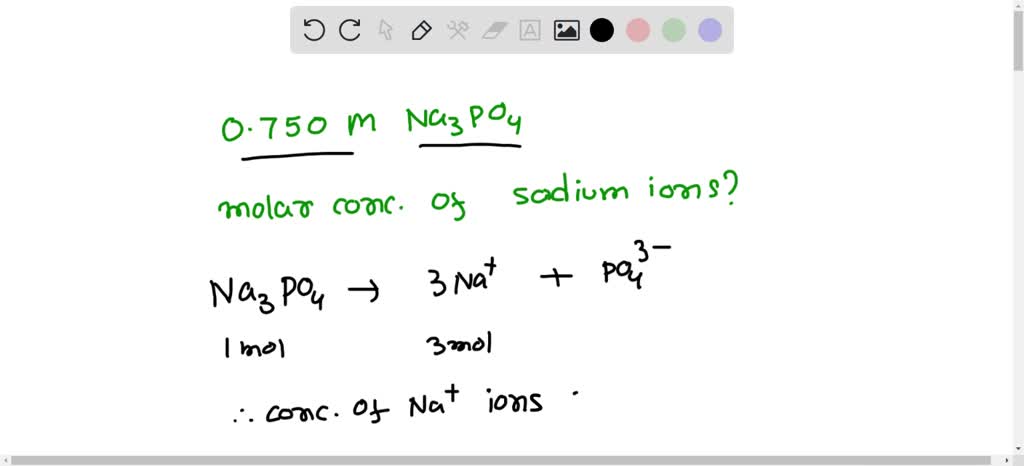 A
0.750 M Na₃PO₄
molar conc. of sodium ions?
Na₃PO₄ → 3Na⁺ + PO₄³⁻
1 mol 3 mol
∴ conc. of Na⁺ ions